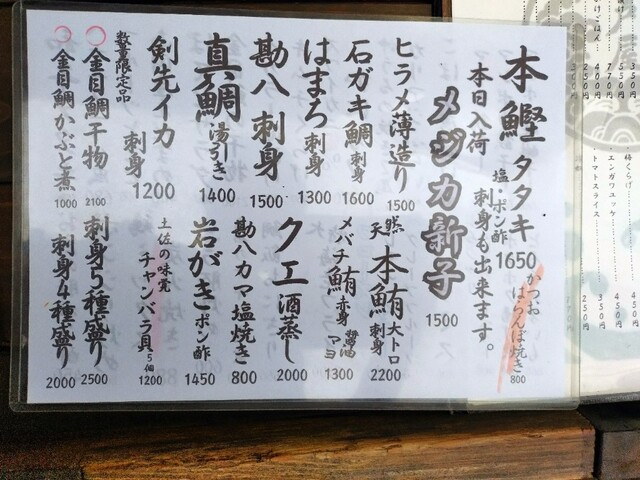 本鰹タタキ 1650
塩・ポン酢
刺身も出来ます。
かつお
はらんぼ焼き
800
本日入荷
メジカ新子
1500
ヒラメ薄造り
1500
天然本鮪大トロ
刺身
2200
石ガキ鯛刺身
1600
メバチ鮪赤身
醤油
マヨ
1300
はまち刺身
1300
クエ酒蒸し
2000
勘八刺身
1500
勘八カマ塩焼き
800
真鯛湯引き
1400
岩がきポン酢
1450
剣先イカ
刺身
1200
土佐の味覚
チャンバラ貝5個
1200
数量限定品
金目鯛干物
2100
刺身5種盛り
2500
金目鯛かぶと煮
1000
刺身4種盛り
2000
350
550
770
400
550
250
棒くらげ
エンガワユッケ
トマトスライス
350
450
250